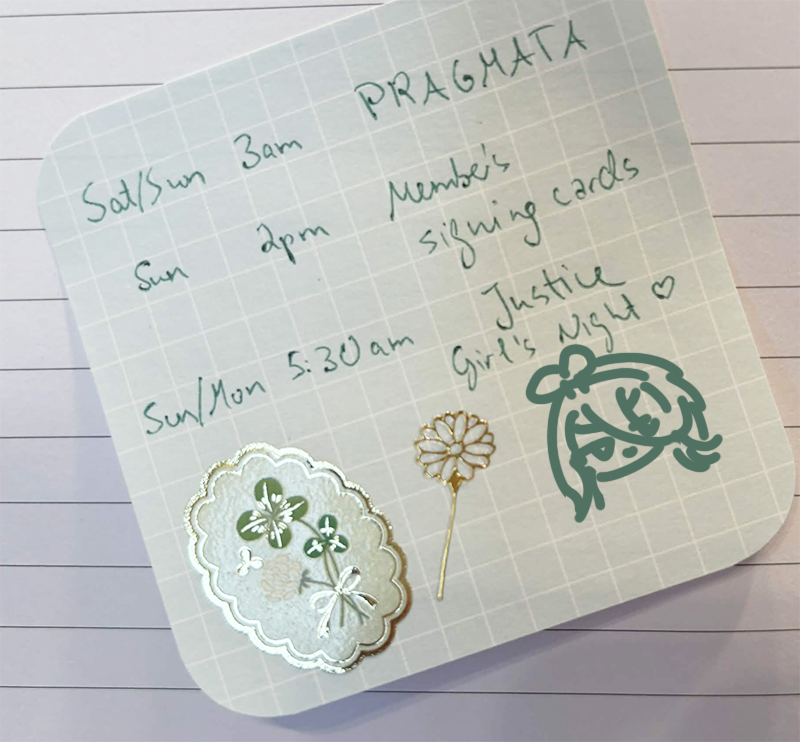 Sat/Sun 3am PRAGMATA
Sun 2pm Member's
signing cards
Sun/Mon 5:30am Justice
Girl's Night ♡